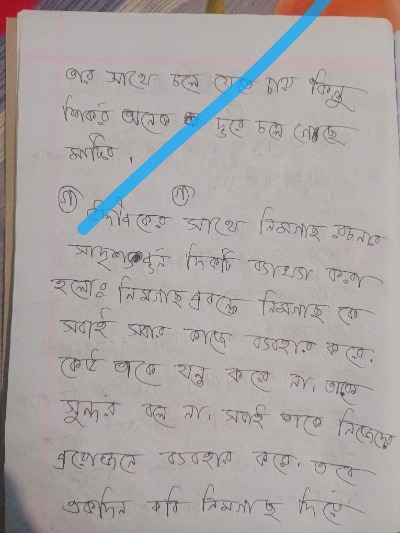 তার সাথে চলে যেতে চায় কিন্তু
শিকড় অনেক দূরে চলে গেছে
মাটির।
গ গ
উদ্দীপকের সাথে নিমগাছ রচনার
সাদৃশ্যপূর্ন দিকটি ব্যাখ্যা করা
হলোঃ নিমগাছ প্রবন্ধে নিমগাছ কে
সবাই সবার কাজে ব্যবহার করে।
কেউ তাকে যত্ন করে না। তাকে
সুন্দর বলে না। সবাই তাকে নিজেদের
প্রয়োজনে ব্যবহার করে। তবে
একদিন কবি নিমগাছ দিয়ে